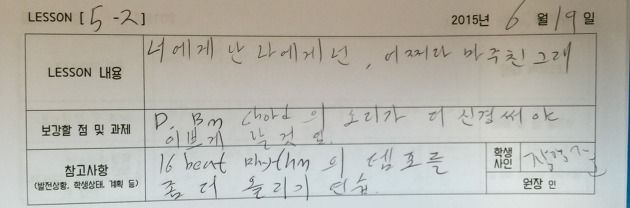 LESSON [ 5 - 2 ] 2015년 6 월 19 일
LESSON 내용
너에게 난 나에게 넌, 어쩌다 마주친 그대
보강할 점 및 과제
D, Bm chord 의 소리가 더 신경써야
이쁘게 날 것 임.
참고사항
(발전상황, 학생상태, 계획 등)
16 beat Rhythm 의 템포를
좀 더 올리기 연습.
학생
사인
원장 인